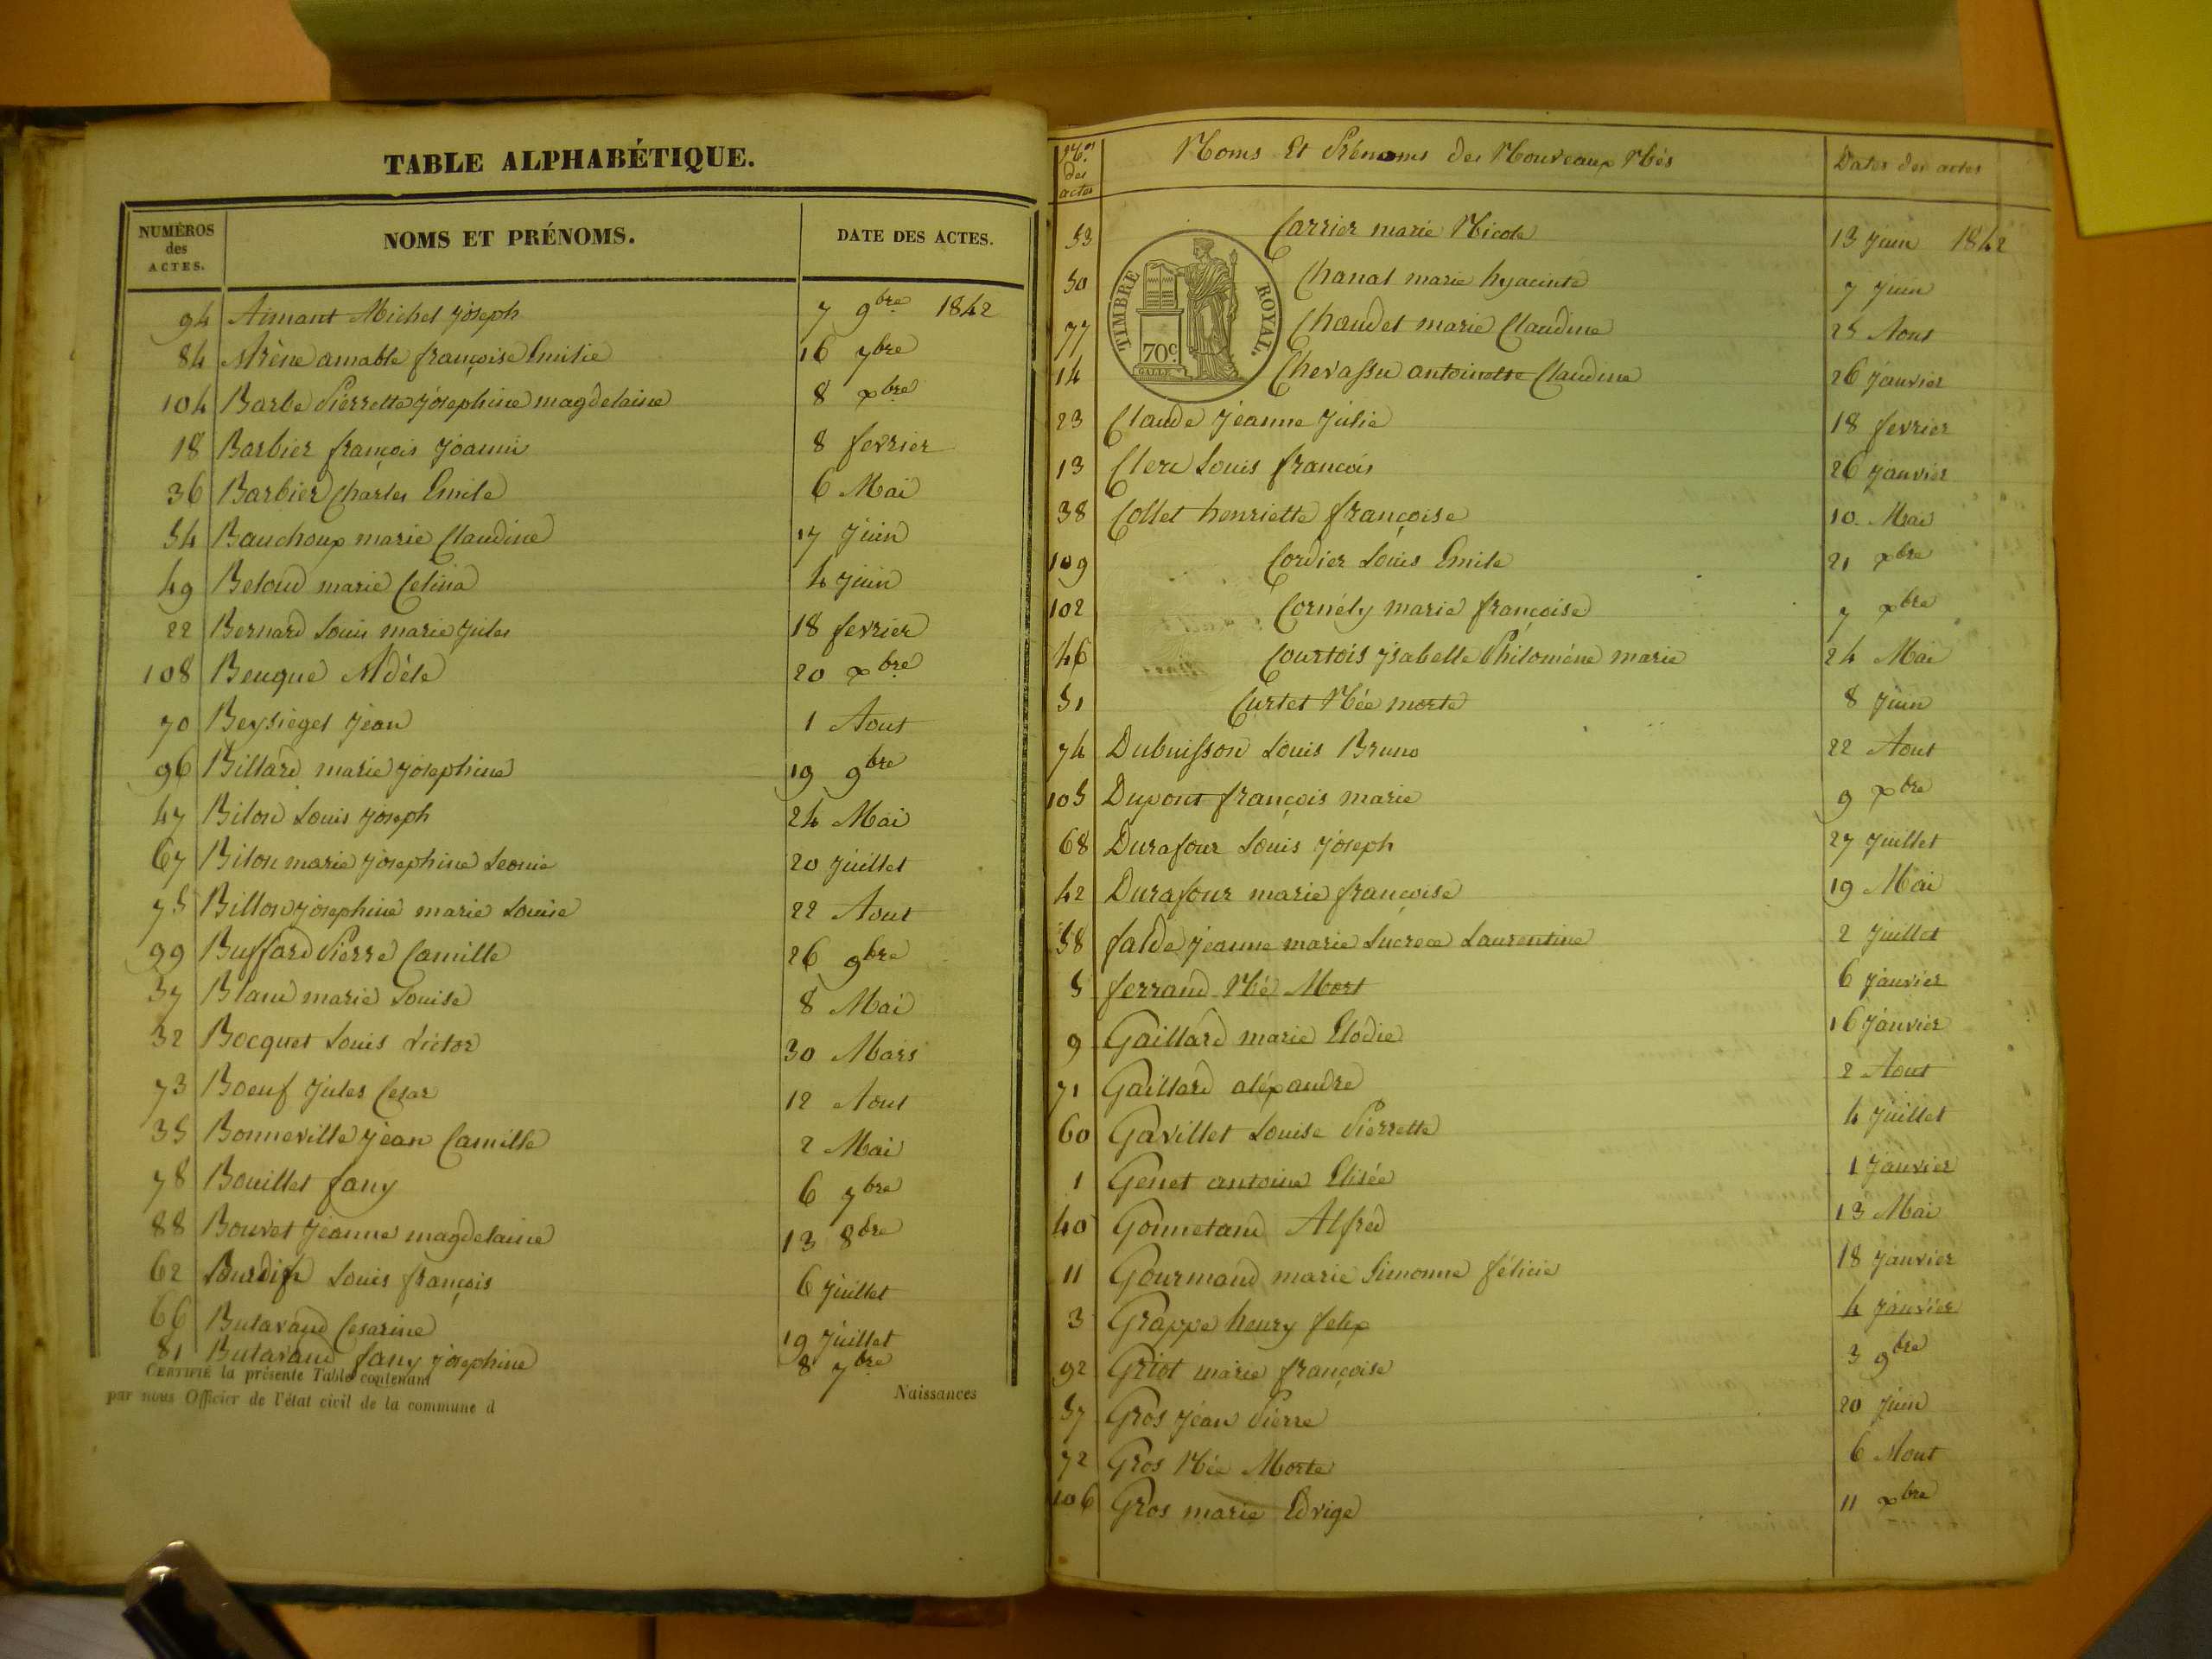 TABLE ALPHABÉTIQUE.
NUMÉROS des ACTES. NOMS ET PRÉNOMS. DATE DES ACTES.
94 Aimant Michel joseph 7 9bre 1842
84 Arène amable françoise Emilie 16 7bre
104 Barbe Pierrette josephine magdelaine 8 xbre
18 Barbier françois joanni 8 fevrier
36 Barbier Charles Emile 6 Mai
54 Bauchoux marie Claudine 17 juin
49 Beloud marie Celina 4 juin
22 Bernard Louis marie jules 18 fevrier
108 Beuque Adèle 20 xbre
70 Beysiegel jean 1 Aout
96 Billard marie josephine 19 9bre
47 Bilon Louis joseph 24 Mai
67 Bilon marie josephine Leonie 20 juillet
75 Billon josephine marie Louise 22 Aout
99 Buffard Pierre Camille 26 9bre
37 Blanc marie Louise 8 Mai
32 Bocquet Louis Victor 30 Mars
73 Boeuf jules Cesar 12 Aout
35 Bonneville jean Camille 2 Mai
78 Bouillet fany 6 7bre
88 Bouvet jeanne magdelaine 13 8bre
62 Louis françois 6 juillet
66 Butavand Cesarine 19 juillet
81 Butavand fany josephine 8 7bre
CERTIFIÉ la présente Table contenant Naissances
par nous Officier de l'état civil de la commune d
Nos des actes Noms Et Prénoms des Nouveaux Nés Dates des actes
53 Carrier marie Nicole 13 juin 1842
50 Chanal marie hyacinte 7 juin
77 Chaudet marie Claudine 25 Aout
14 Chevassu antoinette Claudine 26 janvier
TIMBRE ROYAL.
70c
23 Claude jeanne julie 18 fevrier
13 Clerc Louis francois 26 janvier
38 Collet henriette françoise 10 Mai
109 Cordier Louis Emile 21 xbre
102 Cornély marie françoise 7 xbre
46 Courtois ysabelle Philomène marie 24 Mai
51 Curtet Née morte 8 juin
74 Dubuisson Louis Bruno 22 Aout
105 Dupont françois marie 9 xbre
68 Durafour Louis joseph 27 juillet
42 Durafour marie françoise 19 Mai
58 falde jeanne marie Lucrece Laurentine 2 juillet
5 ferrand Né Mort 6 janvier
9 Gaillard marie Elodie 16 janvier
71 Gaillard aléxandre 2 Aout
60 Gavillet Louise Pierrette 4 juillet
1 Genet antoine Elisée 1 janvier
40 Gonnetand Alfred 13 Mai
11 Gourmand marie Simonne félicie 18 janvier
3 Grappe henry felix 4 janvier
92 Griot marie françoise 3 9bre
57 Gros jean Pierre 20 juin
72 Gros Née Morte 6 Aout
106 Gros marie Edvige 11 xbre